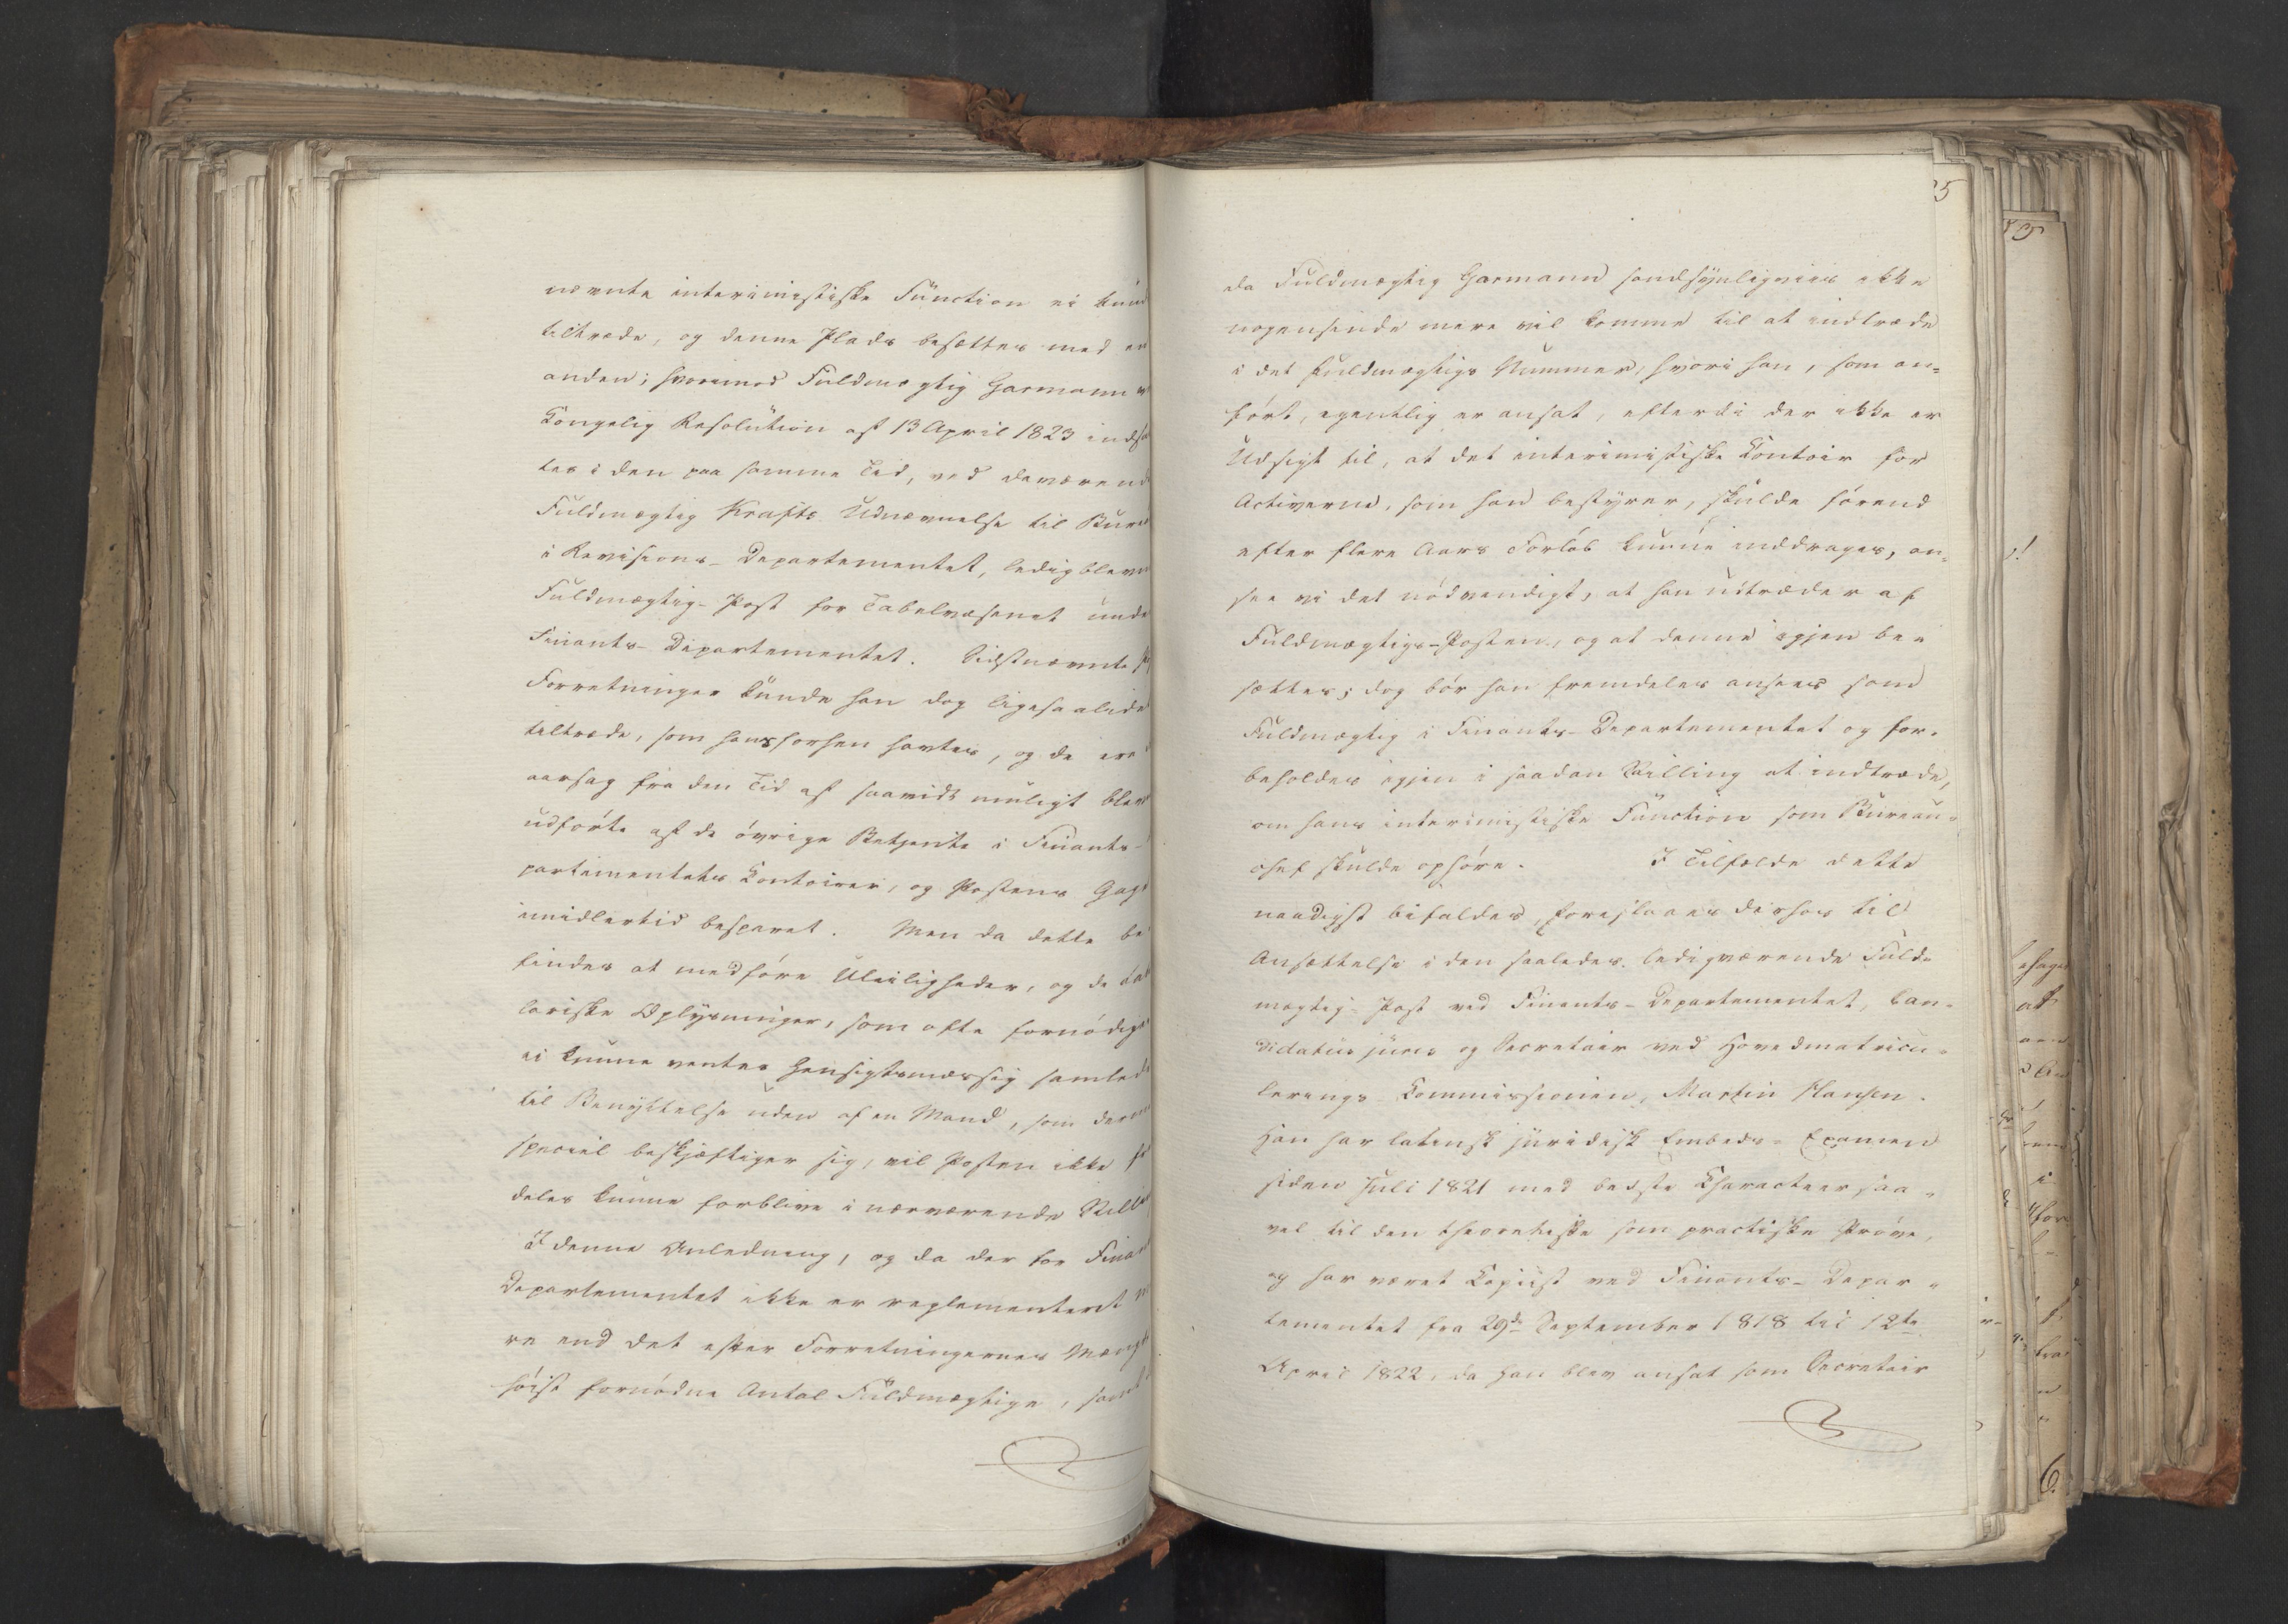 nævnte interimistiske Function ei kund
tiltræde, og denne Plads besættes med en
anden; hvorimod Fuldmægtig Garmann v
Kongelig Resolution af 13 April 1823 indsa
tes i den paa samme Tid, ved daværend
Fuldmægtig Krafts Udnævnelse til Bure
i Revisions-Departementet, ledigblevn
Fuldmægtig-Post for Tabelvæsenet unde
Finants-Departementet. Sidstnævnte P
Forretninger kunde han dog ligesaalide
tiltræde, som hans forhen havtes, og de ere
aarsag fra den Tid af saavidt muligt blev
udførte af de øvrige Betjente i Finants-
partementets Contoirer, og Postens Gage
imidlertid besparet. Men da dette be
findes at medføre Uleiligheder, og de tab
lariske Oplysninger, som ofte fornødige
ei kunne ventes hensigtsmæssig samlede
til Benyttelse uden af en Mand, som derm
speciel beskjæftiger sig, vil Posten ikke fr
deles kunne forblive i nærværende Stilli
I denne Anledning, og da der for Finan
Departementet ikke er reglementeret m
re end det efter Forretningernes Mængd
høist fornødne Antal Fuldmægtige, samt
5
da Fuldmægtig Garmann sandsynligviis ikke
nogensinde mere vil komme til at indtræde
i det Fuldmægtigs Nummer, hvori han, som an=
ført, egentlig er ansat, efterdi der ikke er
Udsigt til, at det interimistiske Contoir for
Activerne, som han bestyrer, skulde førend
efter flere Aars Forløb kunne inddrages, an=
see vi det nødvendigt, at han udtræder af
Fuldmægtigs-Posten, og at denne igjen be=
sættes; dog bør han fremdeles ansees som
Fuldmægtig i Finants-Departementet og for=
beholdes igjen i saadan Stilling at indtræde,
om hans interimistiske Function som Bureau=
chef skulde ophøre. I Tilfælde dette
naadigst bifaldes, foreslaaes derhos til
Ansættelse i den saaledes ledigværende Fuld=
mægtig-Post ved Finants-Departementet, Can=
didatus juris og Secretair ved Hovedmatricu=
lerings Commissionen, Martin Hansen.
Han har latinsk juridisk Embeds-Examen
siden Juli 1821 med bedste Characteer saa=
vel til den theoretiske som practiske Prøve,
og har været Copiist ved Finants-Depar=
tementet fra 29de September 1818 til 12te
April 1822, da han blev ansat som Secretair